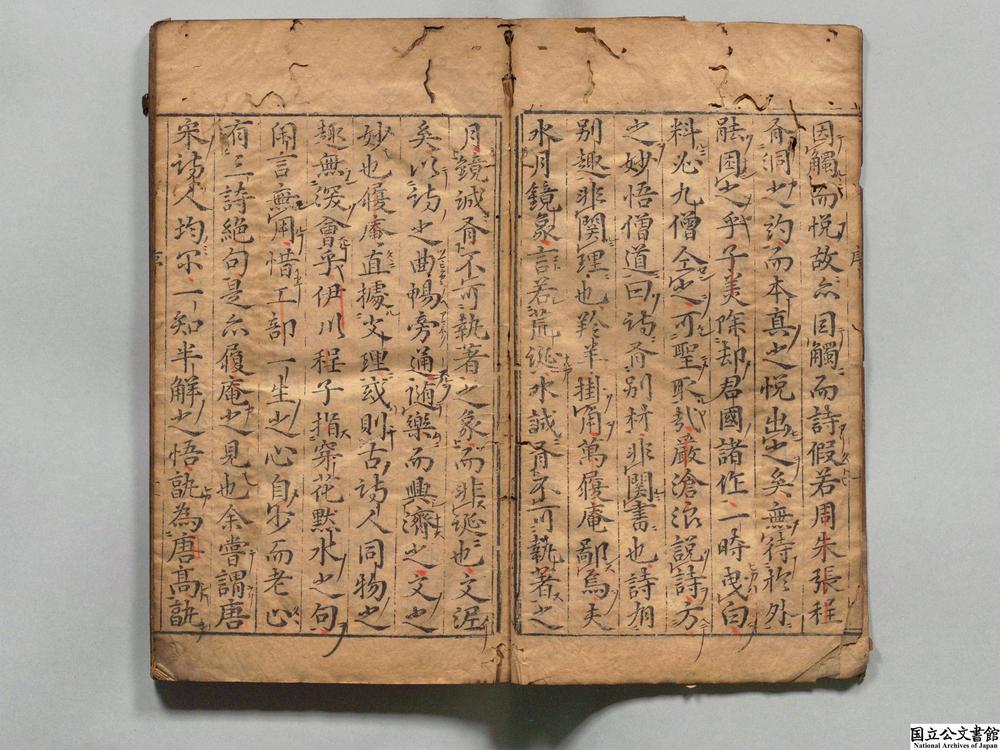 因觸而悅故亦因觸而詩假若周朱張程
有洞之約而本真之悅出之矣無待於外
能困之乎子美除却君國諸作一時曳白
料必九僧仝之可聖耶哉嚴滄浪說詩方
之妙悟僧道曰詩有別材非関書也詩有
别趣非関理也羚羊掛角萬履庵鄙為夫
水月鏡象言若荒誕水誠有不可執著之
月鏡誠有不可執著之象而非誕也文涯
矣以詩之曲暢旁通随樂而興濟之文之
妙也履庵直據文理或則古詩人同物之
趣無深會乎伊川程子指穿花點水之句
閑言無用惜工部一生之心自少而老止
有三詩絕句是亦履庵之見也余嘗謂唐
宋詩人均尔一知半解之悟孰為唐高孰
序
国立公文書館
National Archives of Japan